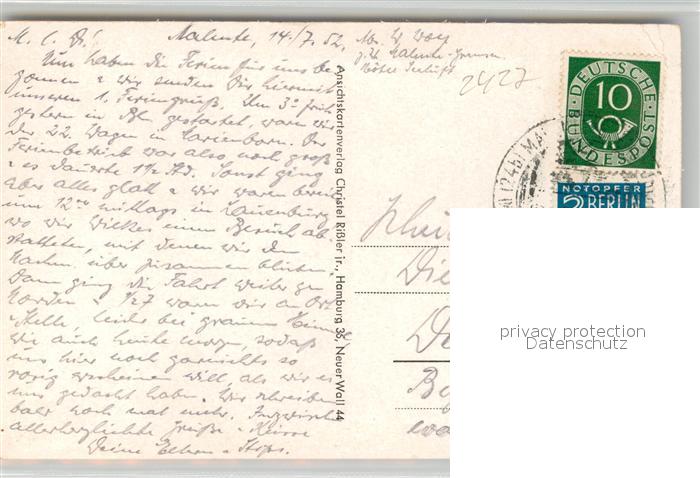 M. l. D.! Malente, 14./7. 52.
Nun haben die Ferien für uns be-
gonnen u wir senden Dir hiermit
unseren 1. Feriengruß. Um 3°° früh
gestern in Bln. gestartet, waren wir
der 22. Wagen in Marienborn. Der
Ferienbetrieb war also noch groß
u es dauerte 1½ Std. Sonst ging
aber alles glatt u wir waren bereits
um 12°° mittags in Lauenburg
wo wir Wilkes einen Besuch ab-
statteten, mit denen wir den
Nachm. über zusammen blieben.
Dann ging die Fahrt weiter gen
Norden u ½7 waren wir an Ort
u Stelle, leider bei grauem Himmel
wie auch heute morgen, sodaß
uns hier noch garnichts so
rosig erscheinen will, als wir es
uns gedacht haben. Wir schreiben
bald noch mal mehr. Inzwischen
allerherzlichste Grüße u Küsse
Deine Eltern u
Abs. W.
z. Zt. Malente-Gremsm.
2427
Ansichtskartenverlag Christel Rißler jr., Hamburg 36, Neuer Wall 44
DEUTSCHE
10
BUNDESPOST
NOTOPFER
2 BERLIN
(24b) MA
Die
privacy protection
Datenschutz